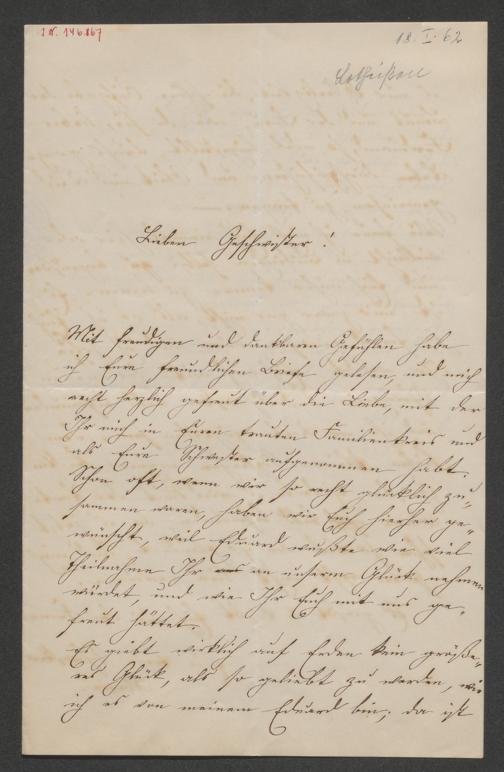 I. N. 146.867
18. I. 62
Lotheißen
Lieben Geschwister!
Mit freudigen und dankbaren Gefühlen habe
ich Eure freundlichen Briefe gelesen, und mich
recht herzlich gefreut über die Liebe, mit der
Ihr mich in Euren trauten Familienkreis und
als Eure Schwester aufgenommen habt.
Schon oft, wenn wir so recht glücklich zu-
sammen waren, haben wir Euch hierher ge-
wünscht, weil Eduard wußte wie viel
Theilnahme Ihr an unserm Glück nehmen
würdet, und wie Ihr Euch mit uns ge-
freut hättet.
Es giebt wirklich auf Erden kein größe-
res Glück, als so geliebt zu werden, wie
ich es von meinem Eduard bin; da ist